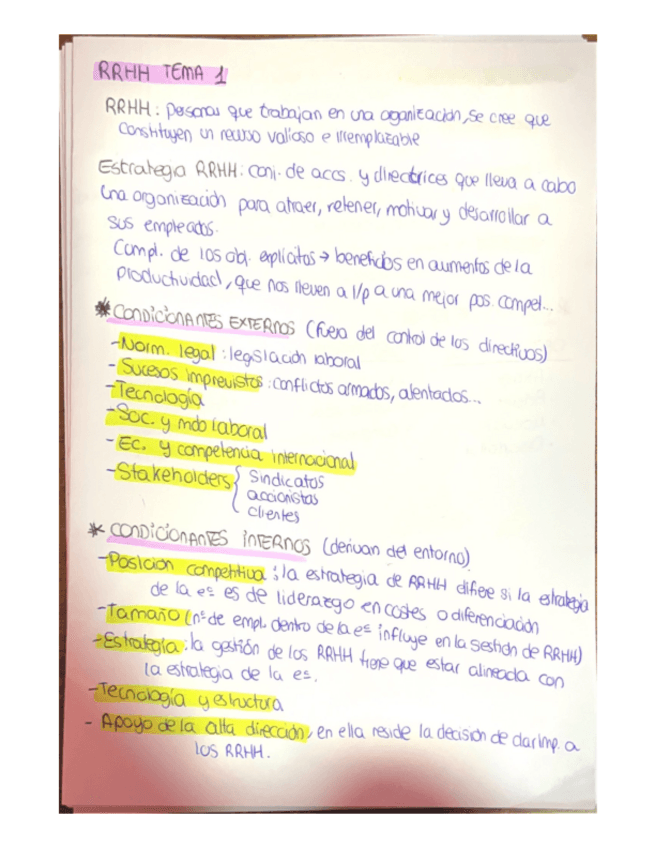 RRHH TEMA 1
RRHH: personas que trabajan en una organización, se cree que
constituyen un recurso valioso e irremplazable
Estrategia RRHH: conj. de accs. y directrices que lleva a cabo
una organización para atraer, retener, motivar y desarrollar a
sus empleados.
Compl. de los obj. explícitos → beneficios en aumentos de la
productividad, que nos lleven a l/p a una mejor pos. compet...
* CONDICIONANTES EXTERNOS (fuera del control de los directivos)
- Norm. legal: legislación laboral
- Sucesos imprevistos: conflictos armados, atentados...
- Tecnología
- Soc. y mdo laboral
- Ec. y competencia internacional
- Stakeholders { Sindicatos
accionistas
clientes
* CONDICIONANTES INTERNOS (derivan del entorno)
- Posición competitiva: la estrategia de RRHH difiere si la estrategia
de la eª es de liderazgo en costes o diferenciación
- Tamaño (nº de empl. dentro de la eª influye en la gestión de RRHH)
- Estrategia: la gestión de los RRHH tiene que estar alineada con
la estrategia de la eª.
- Tecnología y estructura
- Apoyo de la alta dirección, en ella reside la decisión de dar imp. a
los RRHH.